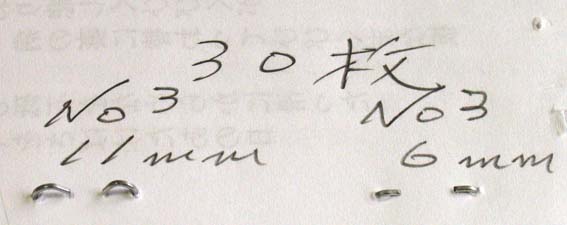 30枚
No3 No3
11mm 6mm